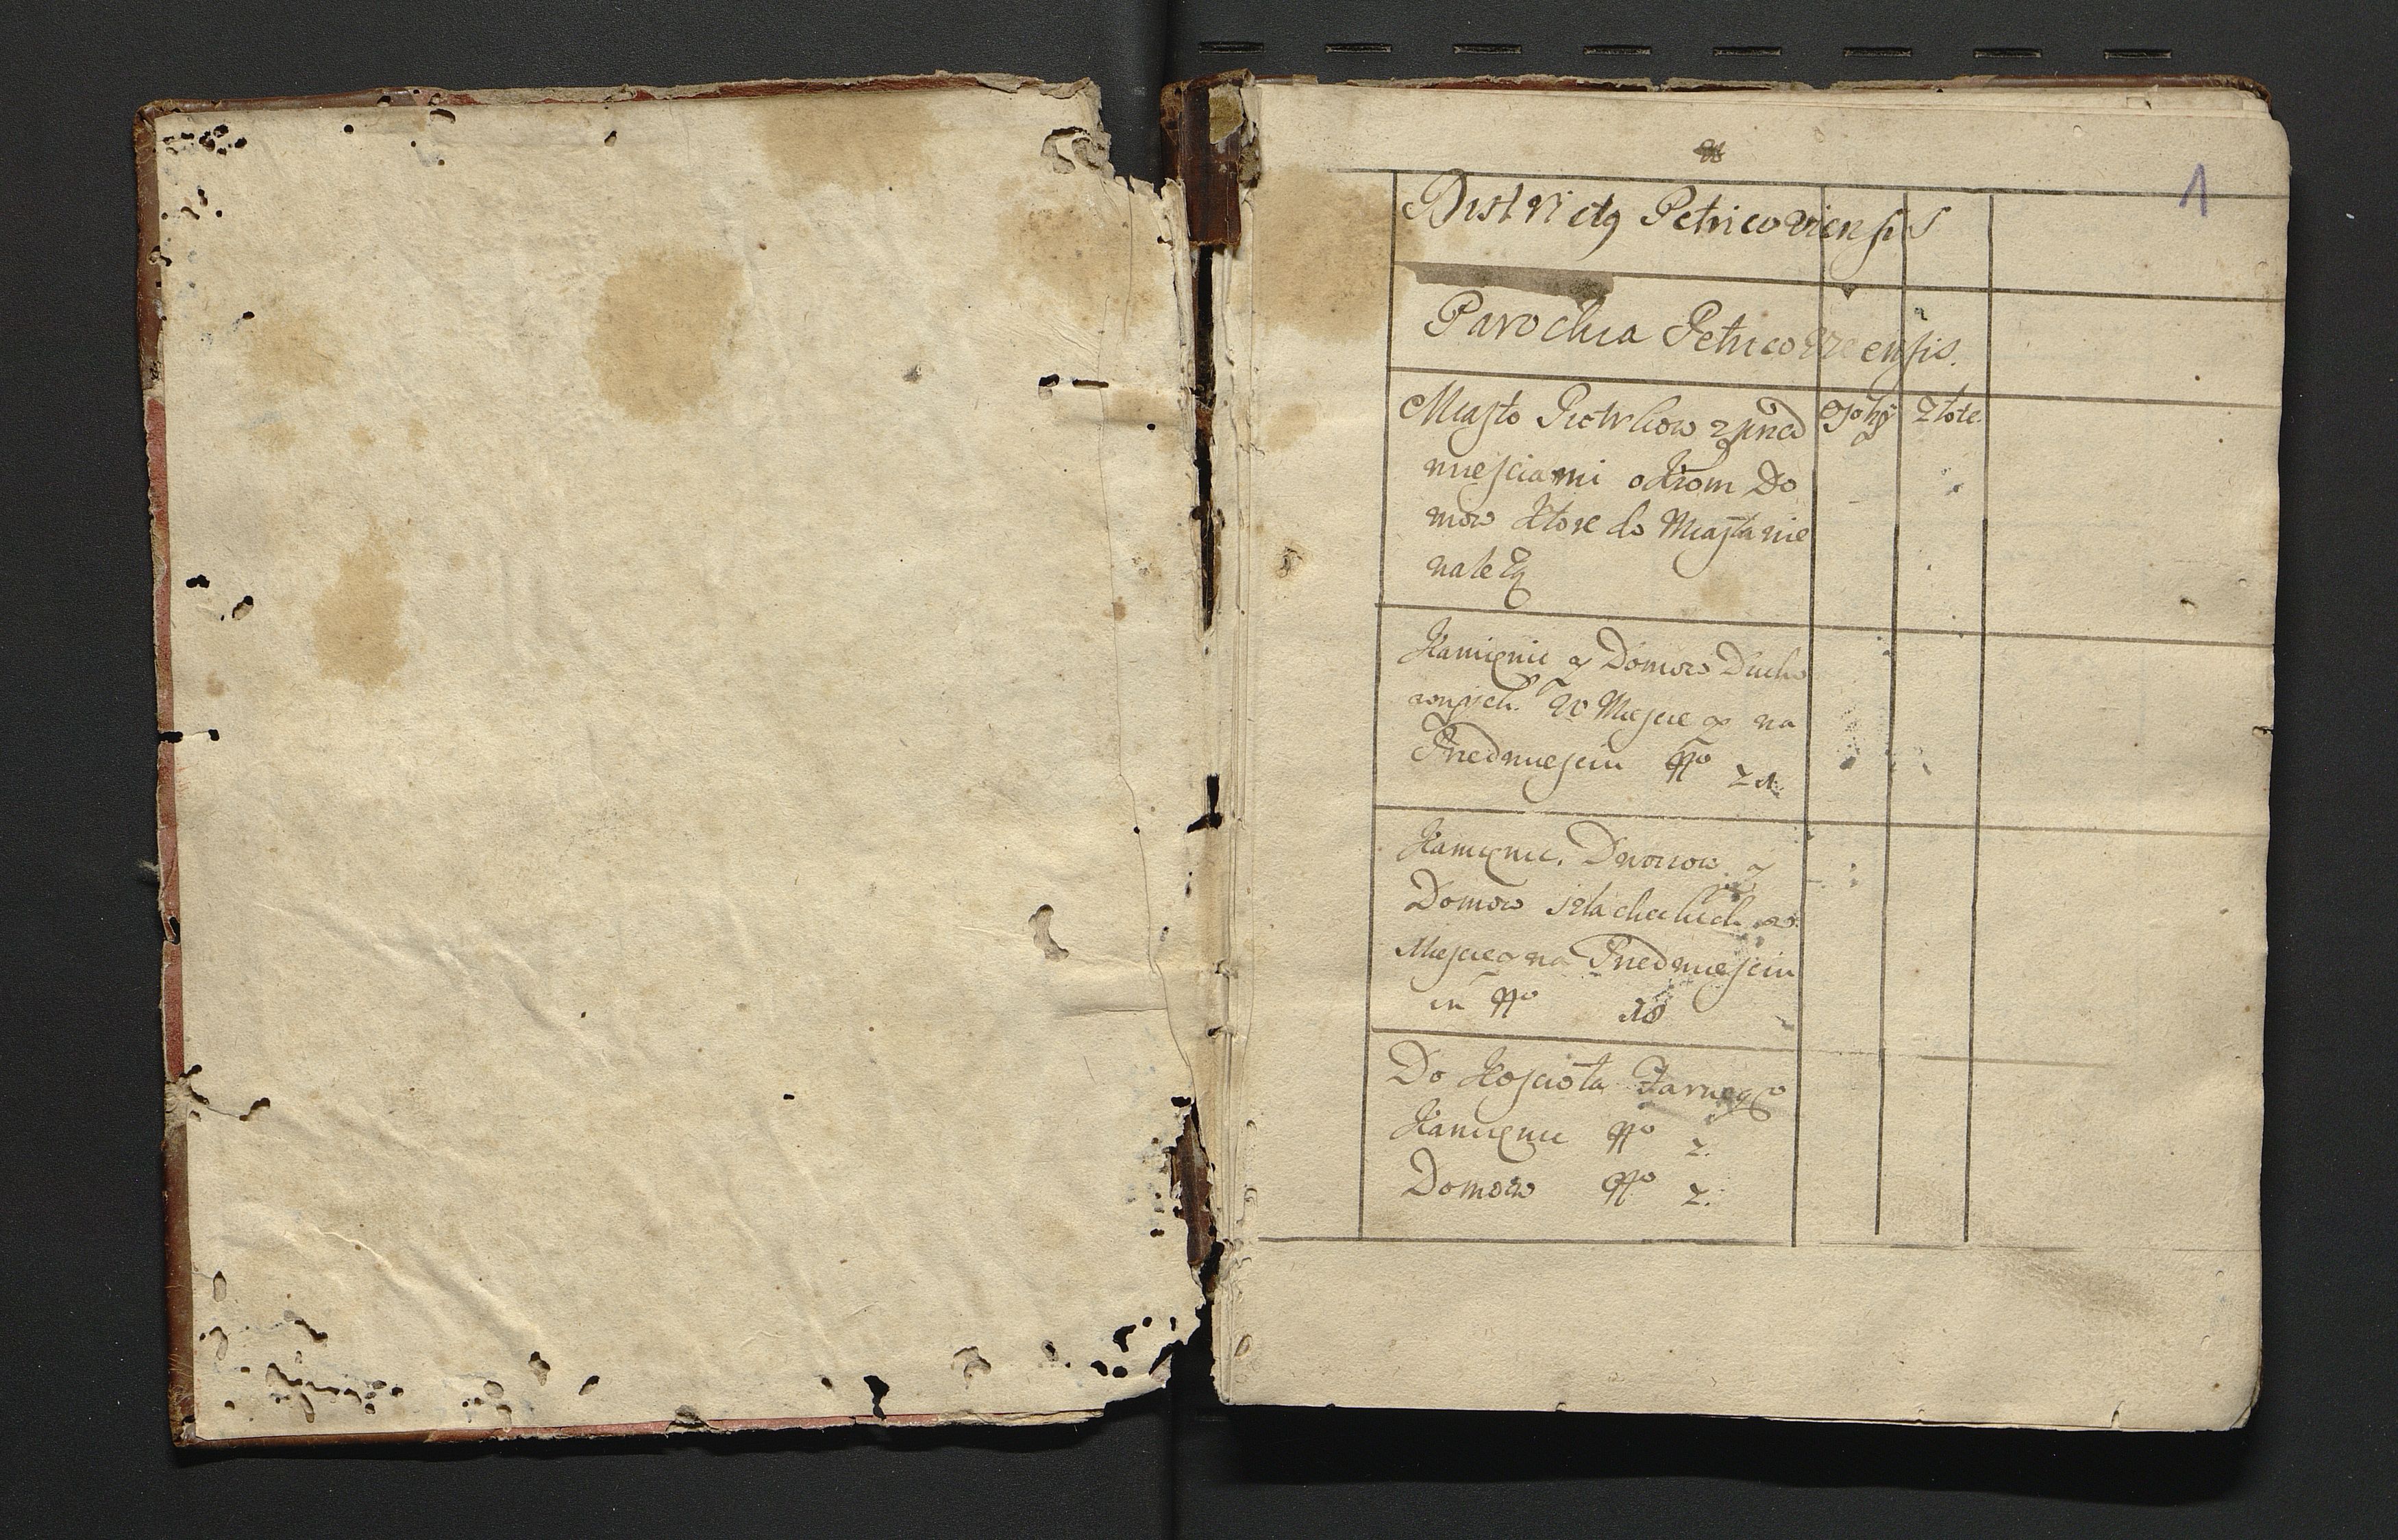 1
Districtꝯ Petricoviensis
Parochia Petricoviensis.
Miasto Piotrkow z pned
miesciami okrom Do
mow ktore do Miasta nie
nalezą
Złote
Kamienic y Domow Ducho
wnych W Miescie y na
Pnedmiesciu No 21.
Kamienic. Dworow y
Domow szlacheckich w
Miescie y na Pnedmiesciu
in No 18
Do Kosciola Farnego
Kamienic No 2.
Domow No 2.